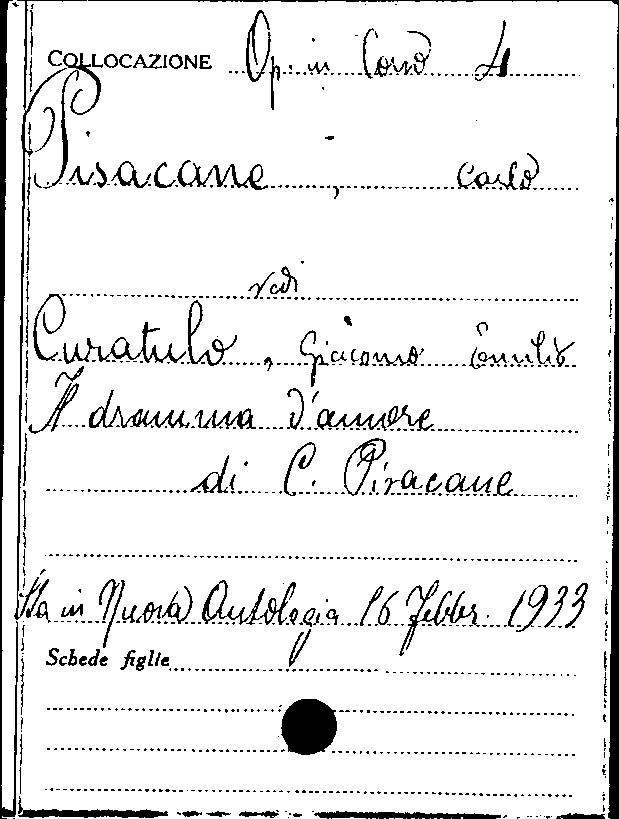 COLLOCAZIONE Op. in Corso 4
Pisacane, Carlo
vedi
Curatulo, Giacomo Emilio
Il dramma d'amore
di C. Pisacane
Sta in Nuova Antologia 16 Febbr. 1933
Schede figlie